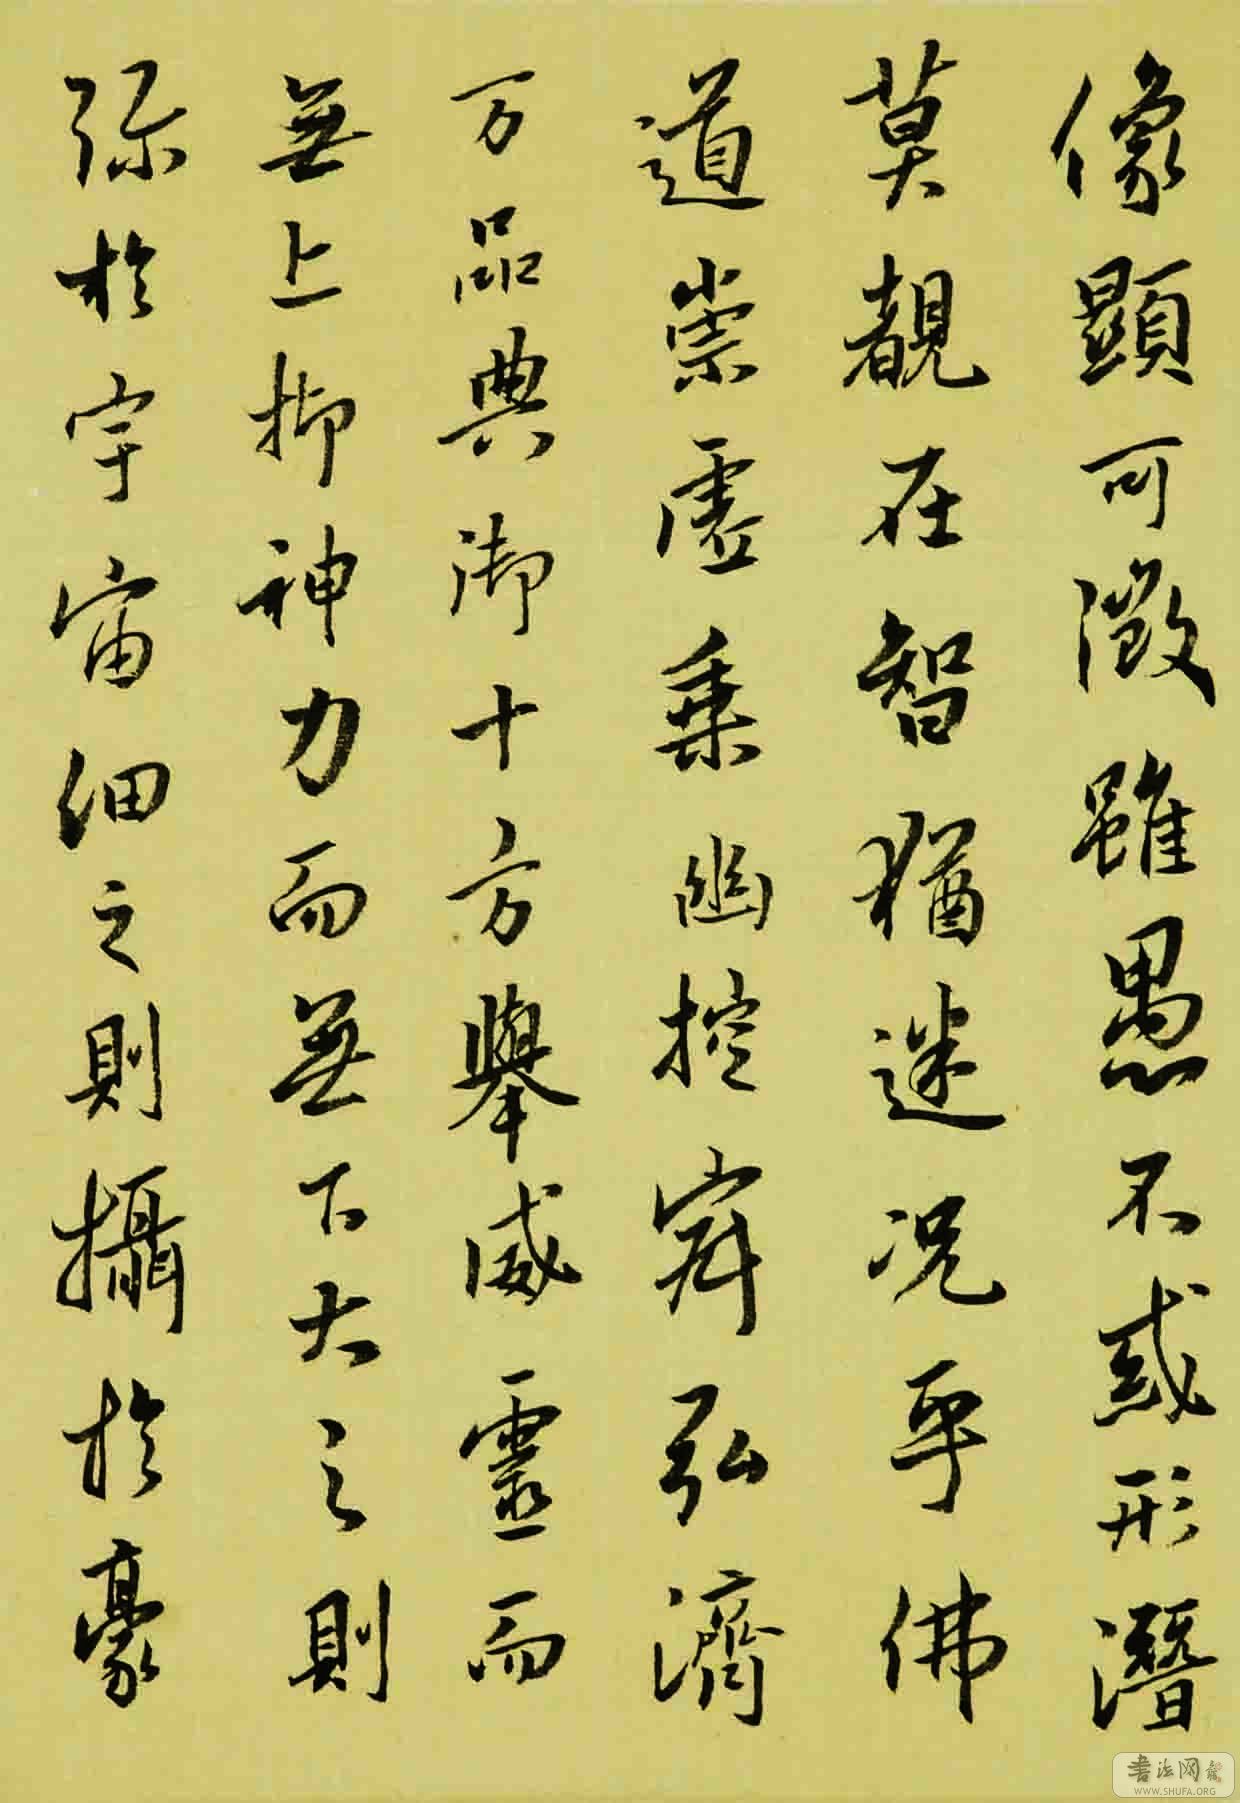 像顯可徵雖愚不惑形潛
莫覩在智猶迷况乎佛
道崇虛乘幽控寂弘濟
万品典御十方舉威靈而
無上抑神力而無下大之則
弥於宇宙細之則攝於豪
書法网
WWW.SHUFA.ORG